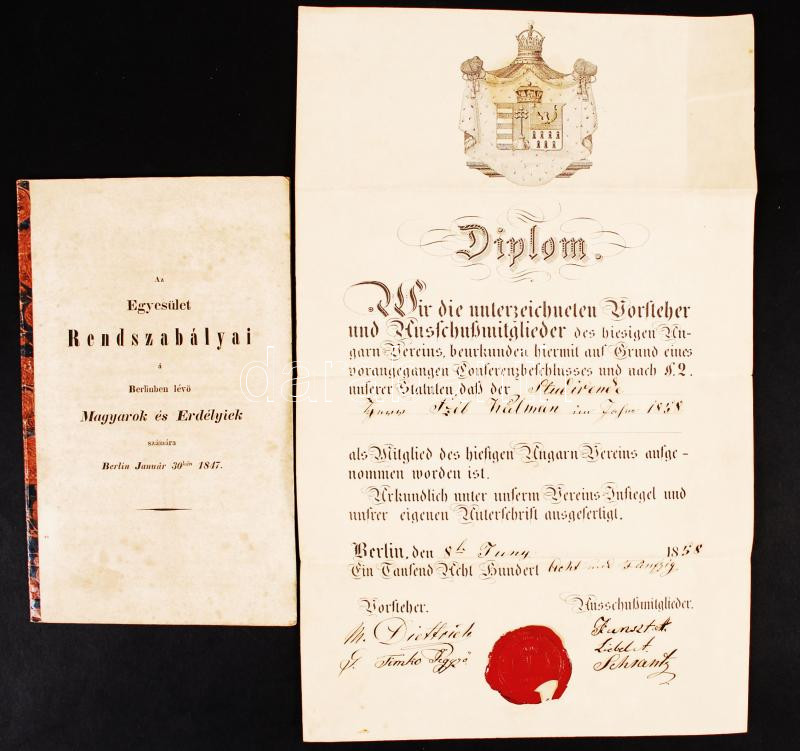 Az
Egyesület
Rendszabályai
á
Berlinben lévö
Magyarok és Erdélyiek
számára
Berlin Január 30kán 1847.
Diplom.
Wir die unterzeichneten Vorsteher
und Ausschußmitglieder des hiesigen Un-
garn Vereins, beurkunden hiermit auf Grund eines
vorangegangen Conferenzbeschlusses und nach §. 2.
unserer Statuten, daß der Studirende
Herr Kálmán im Jahre 1858
als Mitglied des hiesigen Ungarn Vereins aufge-
nommen worden ist.
Urkundlich unter unserm Vereins-Insiegel und
unsrer eigenen Unterschrift ausgefertigt.
Berlin, den 8te Juny 1858
Ein Tausend Acht Hundert acht und Fünfzig
Vorsteher. Ausschußmitglieder.
M. Diettrich
Timko
Schrantz